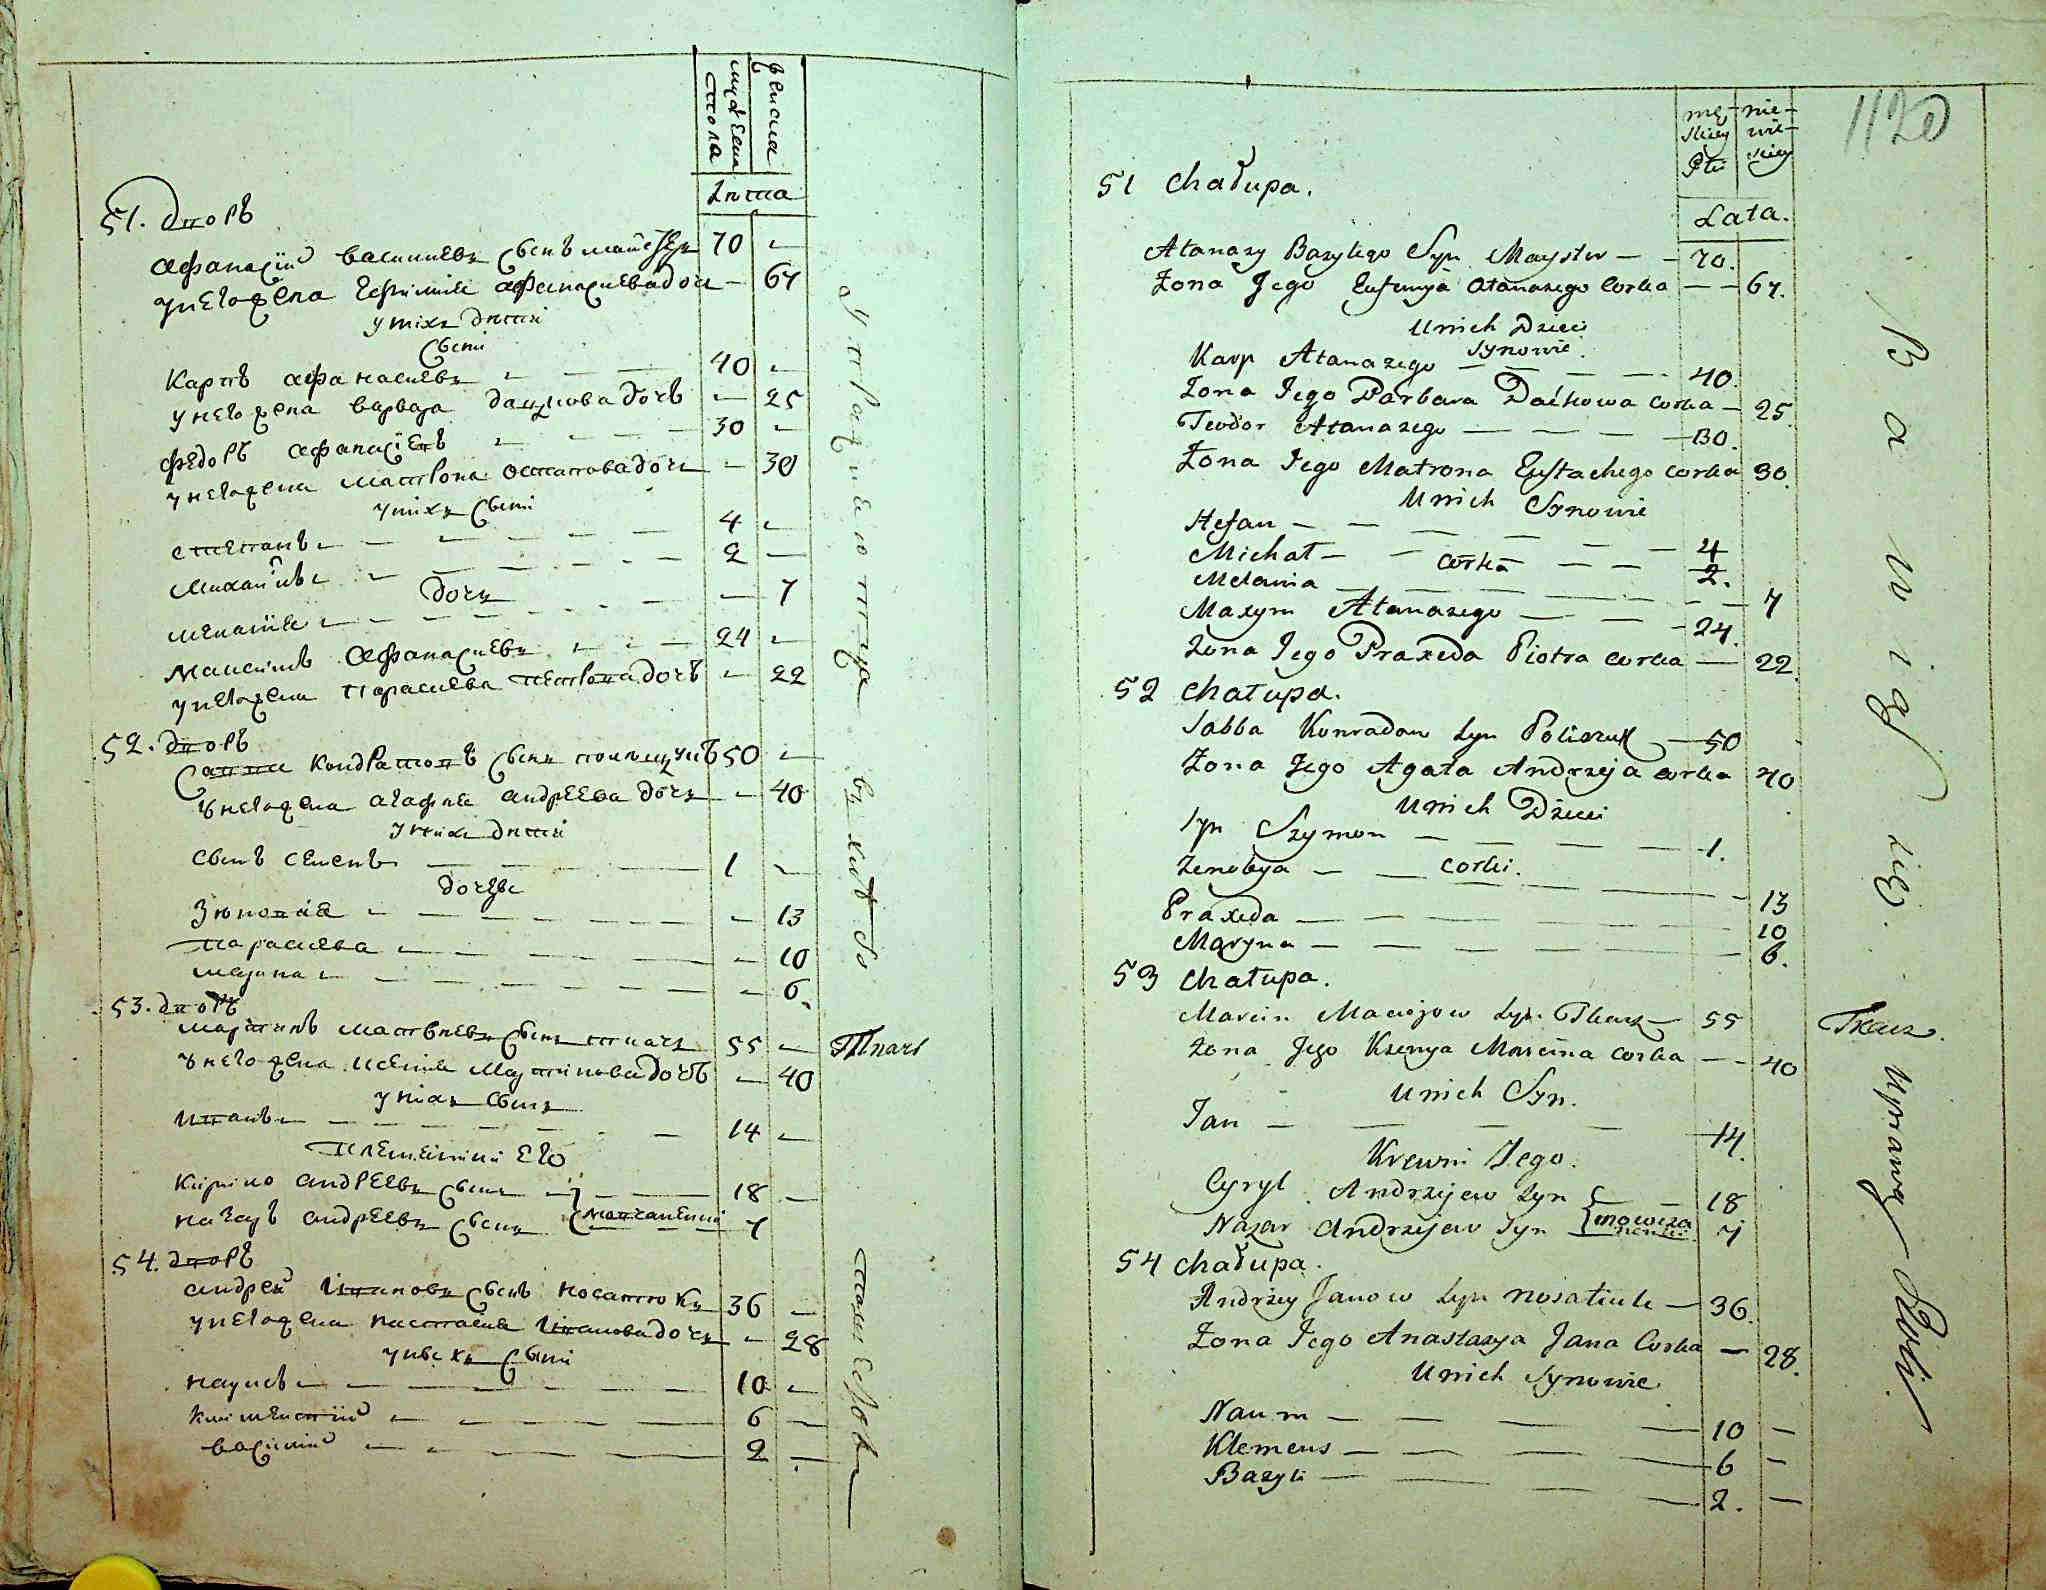 мужеска
пола
женска
Лѣта
51. дворъ
Афанасій Василиевъ сынъ Майстеръ 70 —
у него жена Евфимия Афанасиева дочь — 67
у нихъ дѣти
сыни
Карпъ Афанасиевъ — — — 40 —
у него жена Варвара Дацкова дочъ — 25
Федоръ Афанасіевъ — — — 30 —
у него жена Матрона Остапова дочь — 30
у нихъ сыни
Степанъ — — — — — 4 —
Михайлъ — — — — — 2 —
дочь
Меланія — — — — — 7
Максимъ Афанасиевъ — — — 24 —
у него жена Параскева Петрова дочъ — 22
52. дворъ
Савва Кондратовъ сынъ Полищукъ 50 —
у него жена Агафия Андреева дочь — 40
у нихъ дѣти
сынъ Семенъ — — — 1 —
дочеве
Зиновія — — — — — 13
Параскева — — — — — 10
Марина — — — — — 6.
53. дворъ
Мартинъ Матвиевъ сынъ Ткачъ 55 — Ткачъ
у него жена Ксения Мартинова дочъ — 40
у нихъ сынъ
Иванъ — — — — — 14 —
племѣнники его
Кирило Андреевъ сынъ — — — 18 —
Назаръ Андреевъ сынъ 7
54. дворъ
Андрей Ивановъ сынъ Носатюкъ 36 —
у него жена Настасия Иванова дочь — 28
у нихъ сыни
Наумъ — — — — — 10 —
Климентий — — — — — 6 —
Василий — — — — — 2 —
упражнеются въ хлѣбо
пашествѣ
1120
męskiey
Płci
niewieskiey
Lata.
51 Chałupa.
Atanazy Bazylego Syn Mayster — — 70.
Żona Jego Eufemija Atanazego Corka — — 67.
U nich Dzieci
Synowie.
Karp Atanazego — — — — 40.
Żona Jego Barbara Daćkowa Corka — 25.
Teodor Atanazego — — — — 30.
Żona Jego Matrona Eustachego Corka 30.
U nich Synowie
Stefan — — — — — — 4
Michał — — — — — 2.
Corka
Melania — — — — — — 7
Maxym Atanazego — — — 24.
Żona Jego Praxeda Piotra Corka — 22.
52 Chałupa.
Sabba Konradow Syn Poliszuk — 50
Żona Jego Agata Andrzeja Corka 40
U nich Dzieci
Syn Szymon — — — — 1.
Corki.
Zenobya — — — — — 13
Praxeda — — — — — 10
Maryna — — — — — 6.
53 Chałupa.
Marcin Maciejow Syn Tkacz — 55 Tkacz.
Żona Jego Ksenya Marcina Corka — — 40
U nich Syn.
Jan — — — — — 14.
Krewni Jego.
Cyryl Andrzejew Syn — — 18
Nazar Andrzejew Syn 7
54 Chałupa.
Andrzey Janow Syn Nosatiuk — 36.
Żona Jego Anastazya Jana Corka — 28.
U nich Synowie
Naum — — — — 10 —
Klemens — — — — 6 —
Bazyli — — — — 2. —
Bawią się
Uprawą Roli